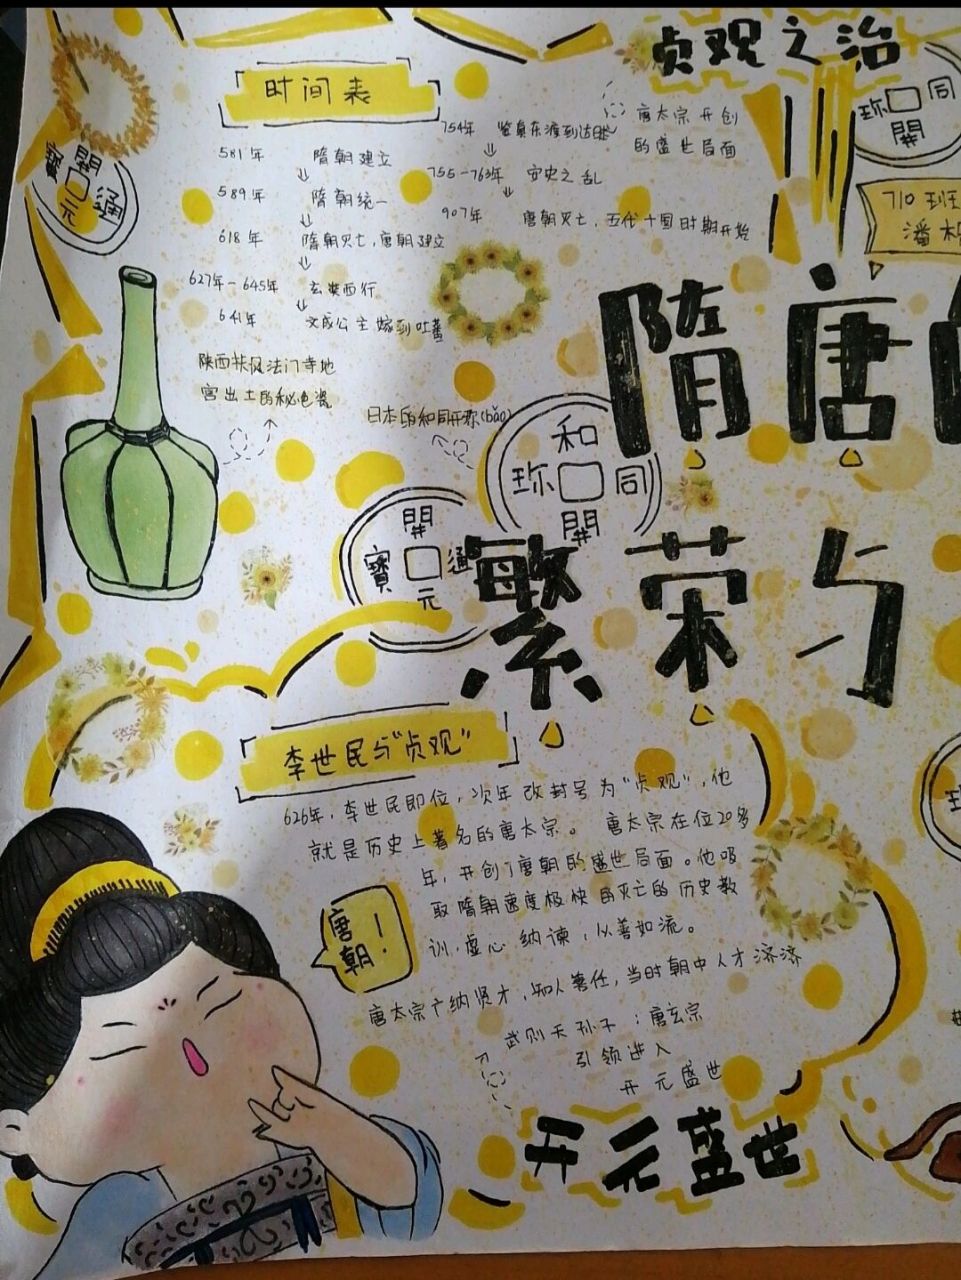 贞观之治
时间表
581年 隋朝建立
589年 隋朝统一
618年 隋朝灭亡,唐朝建立
627年-645年 玄奘西行
641年 文成公主嫁到吐蕃
754年 鉴真东渡到达日本
755-763年 安史之乱
907年 唐朝灭亡,五代十国时期开始
唐太宗开创
的盛世局面
珎 同
開
710班
潘
開
寶 通
元
隋唐
陕西扶风法门寺地
宫出土的秘色瓷
日本的和同开珎(bǎo)
和
珎 同
開
開
寶 通
元
繁荣与
李世民与“贞观”
626年,李世民即位,次年改封号为“贞观”,他
就是历史上著名的唐太宗。唐太宗在位20多
年,开创了唐朝的盛世局面。他吸
取隋朝速度极快的灭亡的历史教
训,虚心纳谏,从善如流。
唐
朝!
唐太宗广纳贤才,知人善任,当时朝中人才济济
武则天孙子:唐玄宗
引领进入
开元盛世
开元盛世